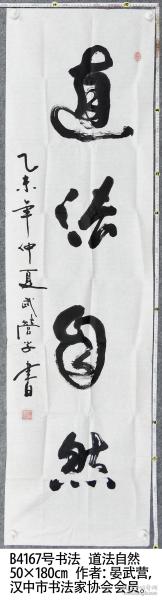 道法自然
乙未年仲夏武营子书
B4167号书法 道法自然
50×180㎝ 作者：晏武营，
汉中市书法家协会会员。